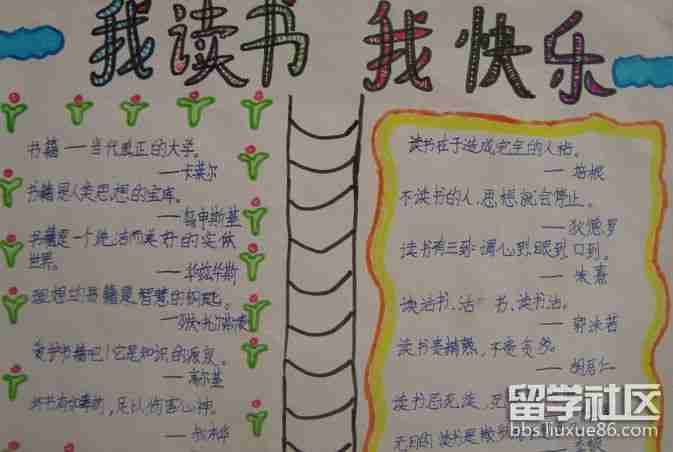 我读书 我快乐
书籍——当代真正的大学。
——卡莱尔
书籍是人类思想的宝库。
——乌申斯基
书籍是一个绝洁而美好的实体
世界。
——华兹华斯
理想的书籍是智慧的钥匙。
——列夫·托尔斯泰
爱护书籍吧!它是知识的源泉。
——高尔基
坏书有如毒药,足以伤害心神。
读书在于造成完全的人格。
——培根
不读书的人,思想就会停止。
——狄德罗
读书有三到:谓心到,眼到,口到。
——朱熹
读活书、活 书、读书活。
——郭沫若
读书要精熟,不要贪多。
——胡居仁
读书
无目的读书是散步
留学社区
bbs.liuxue86.com